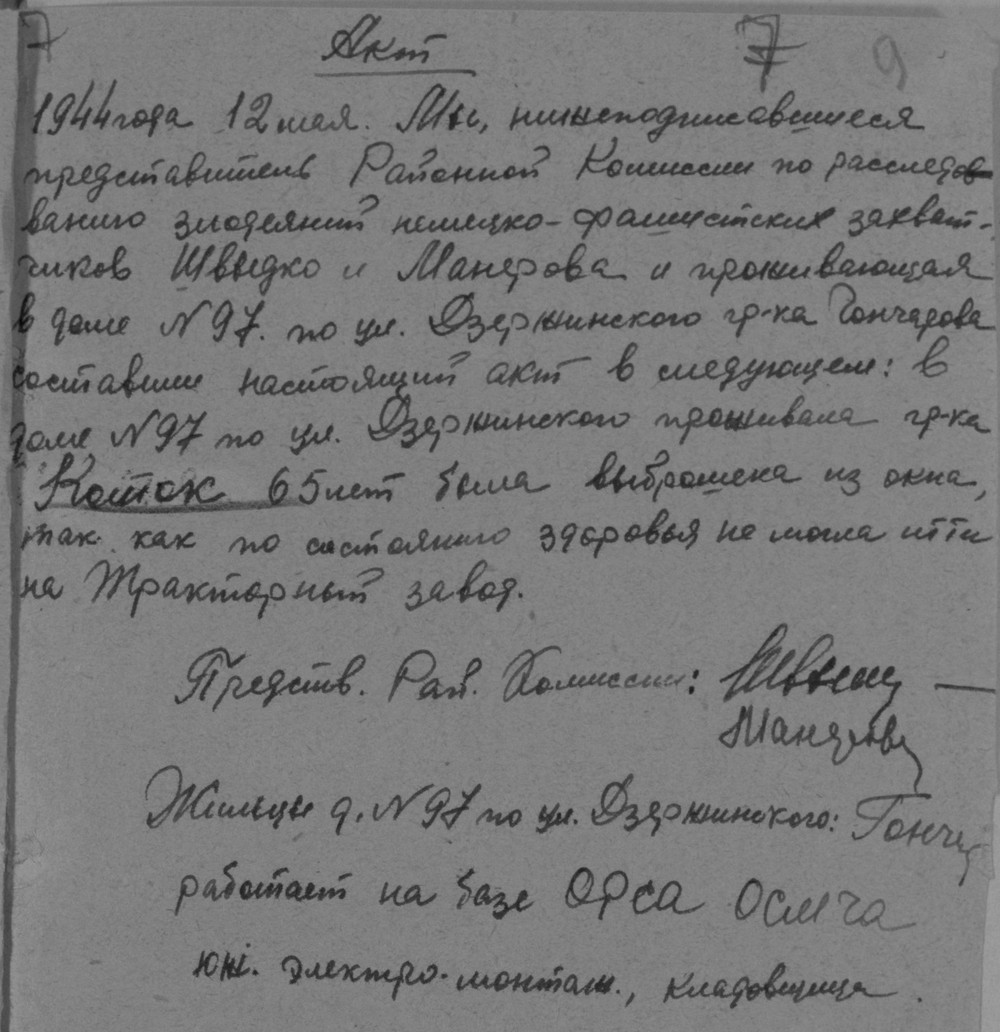 7 Акт 7 9
1944 года 12 мая. Мы, нижеподписавшиеся
представитель Районной Комиссии по расследов-
ванию злодеяний немецко-фашистских захват-
чиков Швыдко и Манерова и проживающая
в доме N 97. по ул. Дзержинского гр-ка Гончарова
составили настоящий акт в следующем: в
доме N 97 по ул. Дзержинского проживала гр-ка
Коток 65 лет была выброшена из окна,
так как по состоянию здоровья не могла итти
на Тракторный завод.
Предств. Рай. Комиссии:
Манерова
Жильцы д. N 97 по ул. Дзержинского: Гонча
работает на базе ОРСа ОСМЧа
Юж. электро-монтаж., кладовщица.